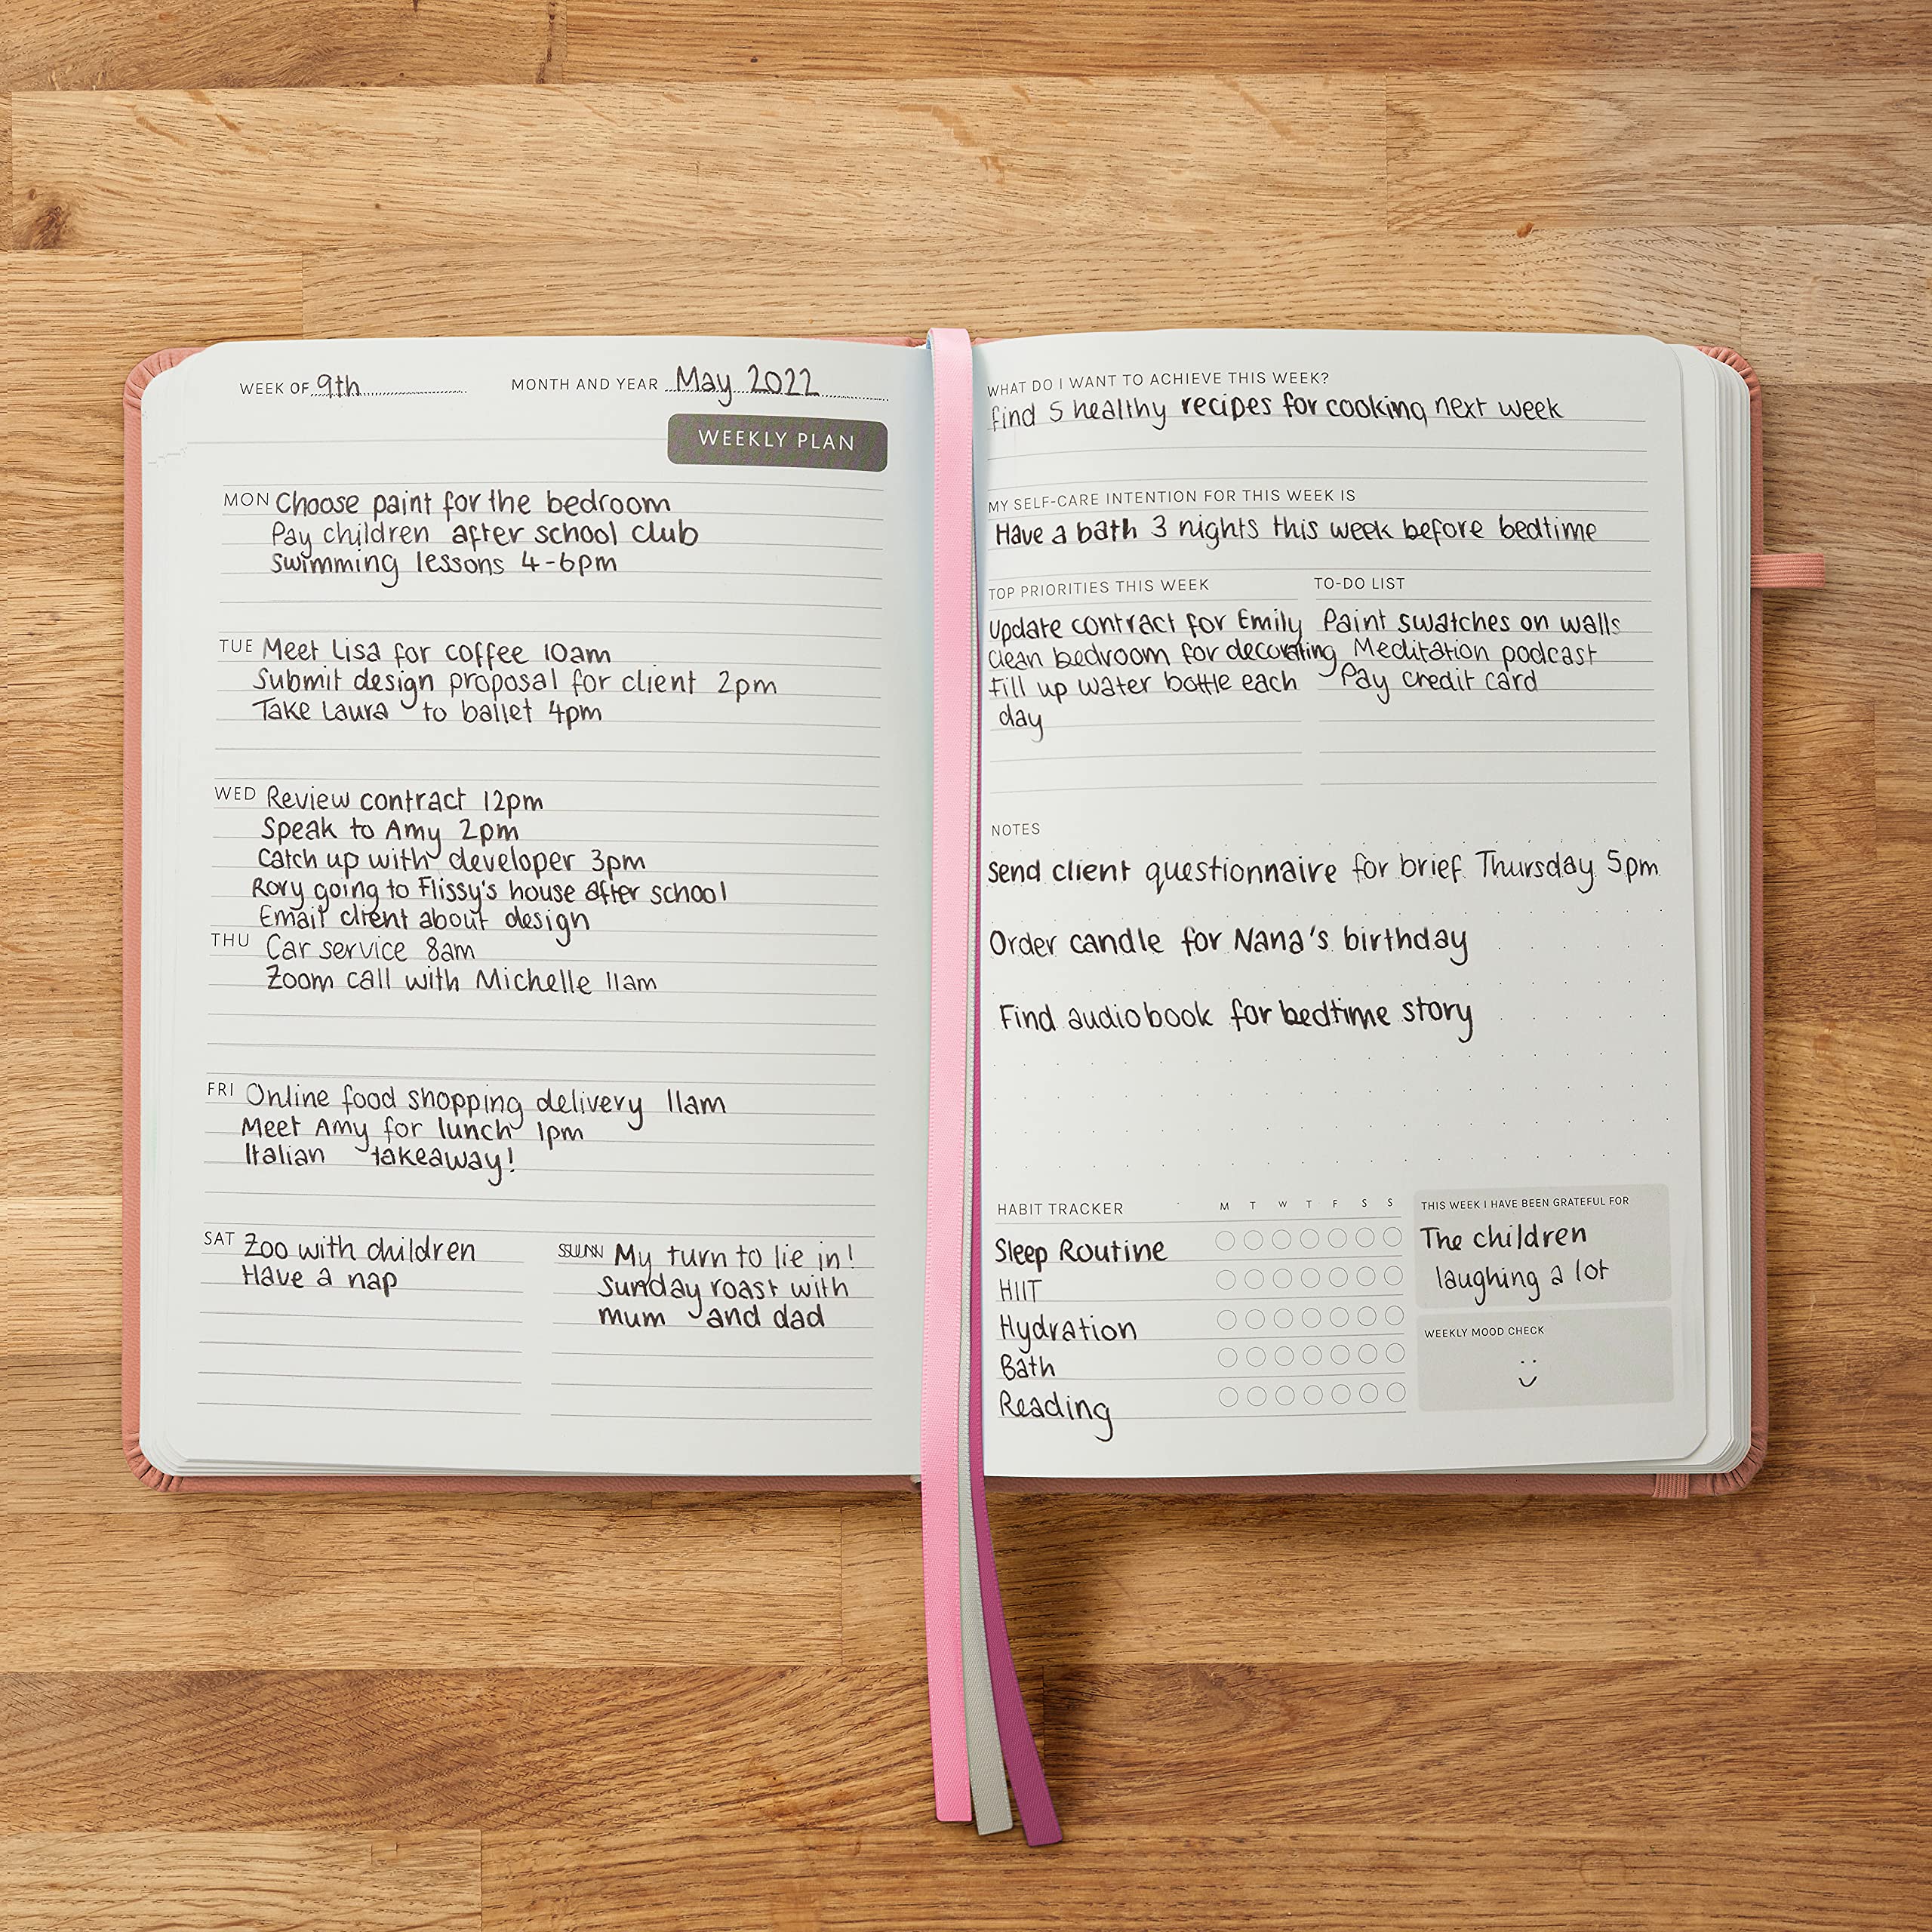 WEEK OF 9th MONTH AND YEAR May 2022
WEEKLY PLAN
MON Choose paint for the bedroom
Pay children after school club
Swimming lessons 4-6pm
TUE Meet Lisa for coffee 10am
Submit design proposal for client 2pm
Take Laura to ballet 4pm
WED Review contract 12pm
Speak to Amy 2pm
Catch up with developer 3pm
Rory going to Flissy's house after school
Email client about design
THU Car service 8am
Zoom call with Michelle 11am
FRI Online food shopping delivery 11am
Meet Amy for lunch 1pm
Italian takeaway!
SAT Zoo with children
Have a nap
SUN My turn to lie in!
Sunday roast with
mum and dad
WHAT DO I WANT TO ACHIEVE THIS WEEK?
find 5 healthy recipes for cooking next week
MY SELF-CARE INTENTION FOR THIS WEEK IS
Have a bath 3 nights this week before bedtime
TOP PRIORITIES THIS WEEK
Update contract for Emily
Clean bedroom for decorating
Fill up water bottle each
day
TO-DO LIST
Paint swatches on walls
Meditation podcast
Pay credit card
NOTES
Send client questionnaire for brief Thursday 5pm
Order candle for Nana's birthday
Find audiobook for bedtime story
HABIT TRACKER M T W T F S S
Sleep Routine
HIIT
Hydration
Bath
Reading
THIS WEEK I HAVE BEEN GRATEFUL FOR
The children
laughing a lot
WEEKLY MOOD CHECK